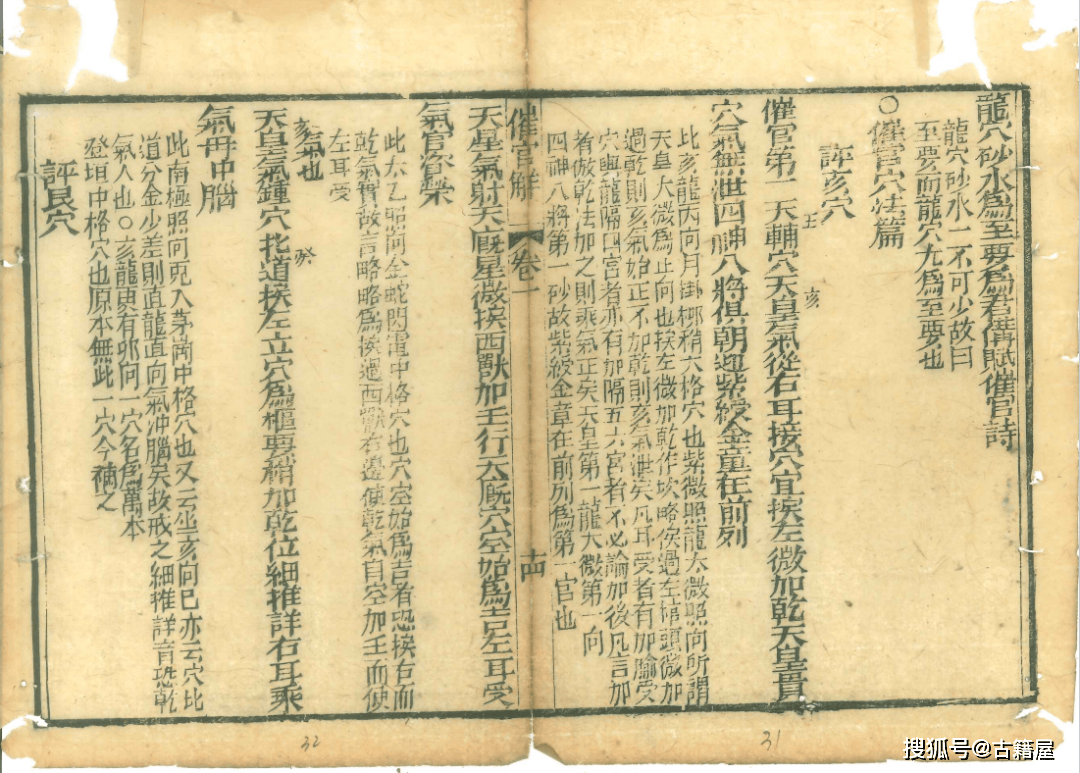 龍穴砂水爲至要爲君僭賦催官詩
龍穴砂水一不可少故曰
至要而龍穴尤爲至要也
○催官穴法篇
評亥穴
壬 亥
催官第一天輔穴天皇氣從右耳接穴宜挨左微加乾天皇貫
穴氣無泄四神八將俱朝迎紫綬金章在前列
此亥龍丙向月掛柳稍六格穴也紫微照龍太微照向所謂
天皇太微爲正向也挨左微加乾作坎略俟過左棺頭微加
過乾則亥氣始正不加乾則亥氣泄矣凡耳受者有加腧受
穴與龍隔四宮者亦有加隔五六宮者不必論加後凡言加
者倣乾法加之則乘氣正矣天皇第一龍太微第一向
四神八將第一砂故紫綬金章在前列爲第一官也
催官解 卷一 十四
天星氣射天廐星微挨西獸加壬行天廐穴空始爲吉左耳受
氣官資榮
此太乙照向金蛇閃電中格穴也穴空始爲吉者恐挨右而
乾氣實故言略略爲挨過西獸右邊使乾氣自空加壬而使
左耳受
亥氣也
癸
天皇氣鍾穴北道挨左立穴爲樞要稍加乾位細推詳右耳乘
氣毋冲腦
此南極照向兎入茅崗中格穴也又云坐亥向巳亦云穴比
道分金少差則直龍直向氣冲腦矣故戒之細推詳者恐乾
氣入也○亥龍更有卯向一穴名爲萬本
登垣中格穴也原本無此一穴今補之
評艮穴
31
32
搜狐号@古籍屋